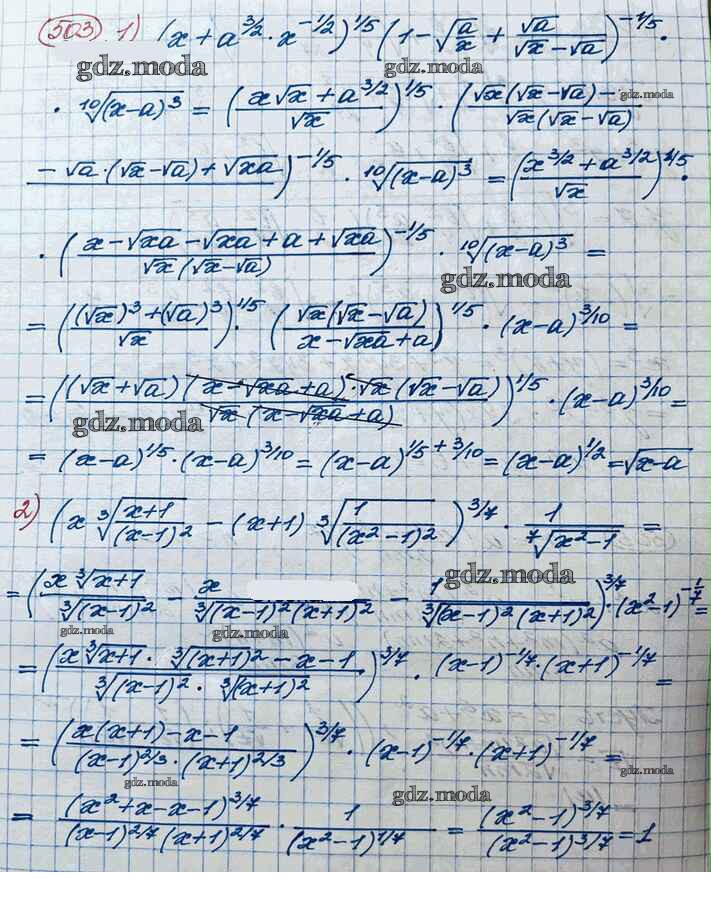 503 1) (x + a^{3/2} · x^{-1/2})^{1/5} (1 - √(a/x) + √a/(√x - √a))^{-1/5} ·
gdz.moda gdz.moda gdz.moda
· ¹⁰√((x-a)^3) = ((x√x + a^{3/2})/√x)^{1/5} · ((√x(√x - √a) -)/(√x(√x - √a))
(- √a · (√x - √a) + √xa)/)^{-1/5} · ¹⁰√((x-a)^3) = ((x^{3/2} + a^{3/2})/√x)^{1/5} ·
· ((x - √xa - √xa + a + √xa)/(√x(√x - √a)))^{-1/5} · ¹⁰√((x-a)^3) =
gdz.moda
= (((√x)^3 + (√a)^3)/√x)^{1/5} · ((√x(√x - √a))/(x - √xa + a))^{1/5} · (x-a)^{3/10} =
= (((√x + √a)(x - √xa + a) · √x(√x - √a))/(√x(x - √xa + a)))^{1/5} · (x-a)^{3/10} =
gdz.moda
= (x-a)^{1/5} · (x-a)^{3/10} = (x-a)^{1/5 + 3/10} = (x-a)^{1/2} = √x-a
2) (x ³√((x+1)/(x-1)^2) - (x+1) ³√(1/(x^2-1)^2))^{3/7} · 1/⁷√(x^2-1) =
gdz.moda
= (x ³√(x+1)/³√((x-1)^2) - x/³√((x-1)^2(x+1)^2) - 1/³√((x-1)^2(x+1)^2))^{3/7} · (x^2-1)^{-1/7} =
gdz.moda gdz.moda gdz.moda
= ((x ³√(x+1) · ³√((x+1)^2) - x - 1)/(³√((x-1)^2) · ³√((x+1)^2)))^{3/7} · (x-1)^{-1/7} · (x+1)^{-1/7} =
= ((x(x+1) - x - 1)/((x-1)^{2/3} · (x+1)^{2/3}))^{3/7} · (x-1)^{-1/7} · (x+1)^{-1/7} =
gdz.moda gdz.moda
= (x^2 + x - x - 1)^{3/7}/((x-1)^{2/7}(x+1)^{2/7}) · 1/(x^2-1)^{1/7} = (x^2-1)^{3/7}/(x^2-1)^{3/7} = 1